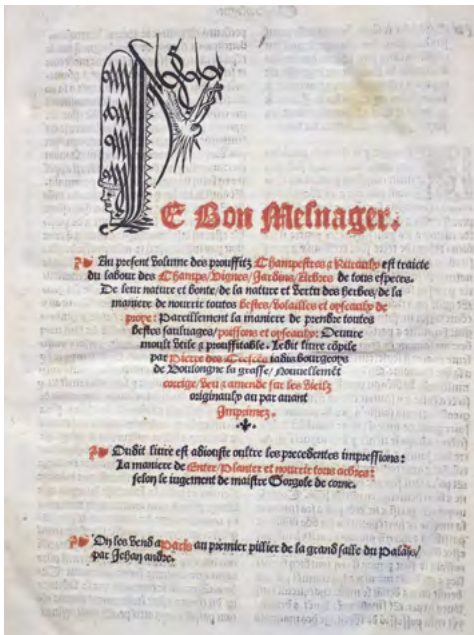 LE Bon Mesnager.
Au present Volume des prouffitz Champestres & Ruraulx est traicte
du labour des Champs/Vignes/Jardins/Arbres de tous especes.
De leur nature et bonte/de la nature et Vertu des herbes/de la
maniere de nourrir toutes Bestes/Volailles et oyseaulx de
proye: Pareillement la maniere de prendre toutes
bestes sauluages/poissons et oyseaulx: Oeuure
moult Vtile & prouffitable. Ledit liure cõpile
par Pierre des Cressẽs iadis bourgeoys
de Boulongne la grasse/Nouuellemẽt
corrige/Veu & amende sur les Vieilz
originaulx au par auant
Imprimez.
Oudit liure est adiouste oultre les precedentes impressions:
La maniere de Enter/Planter et nourrir tous arbres:
selon le iugement de maistre Gorgole de corne.
On les Vend a Paris au premier pillier de la grand salle du Palais/
par Jehan andre.